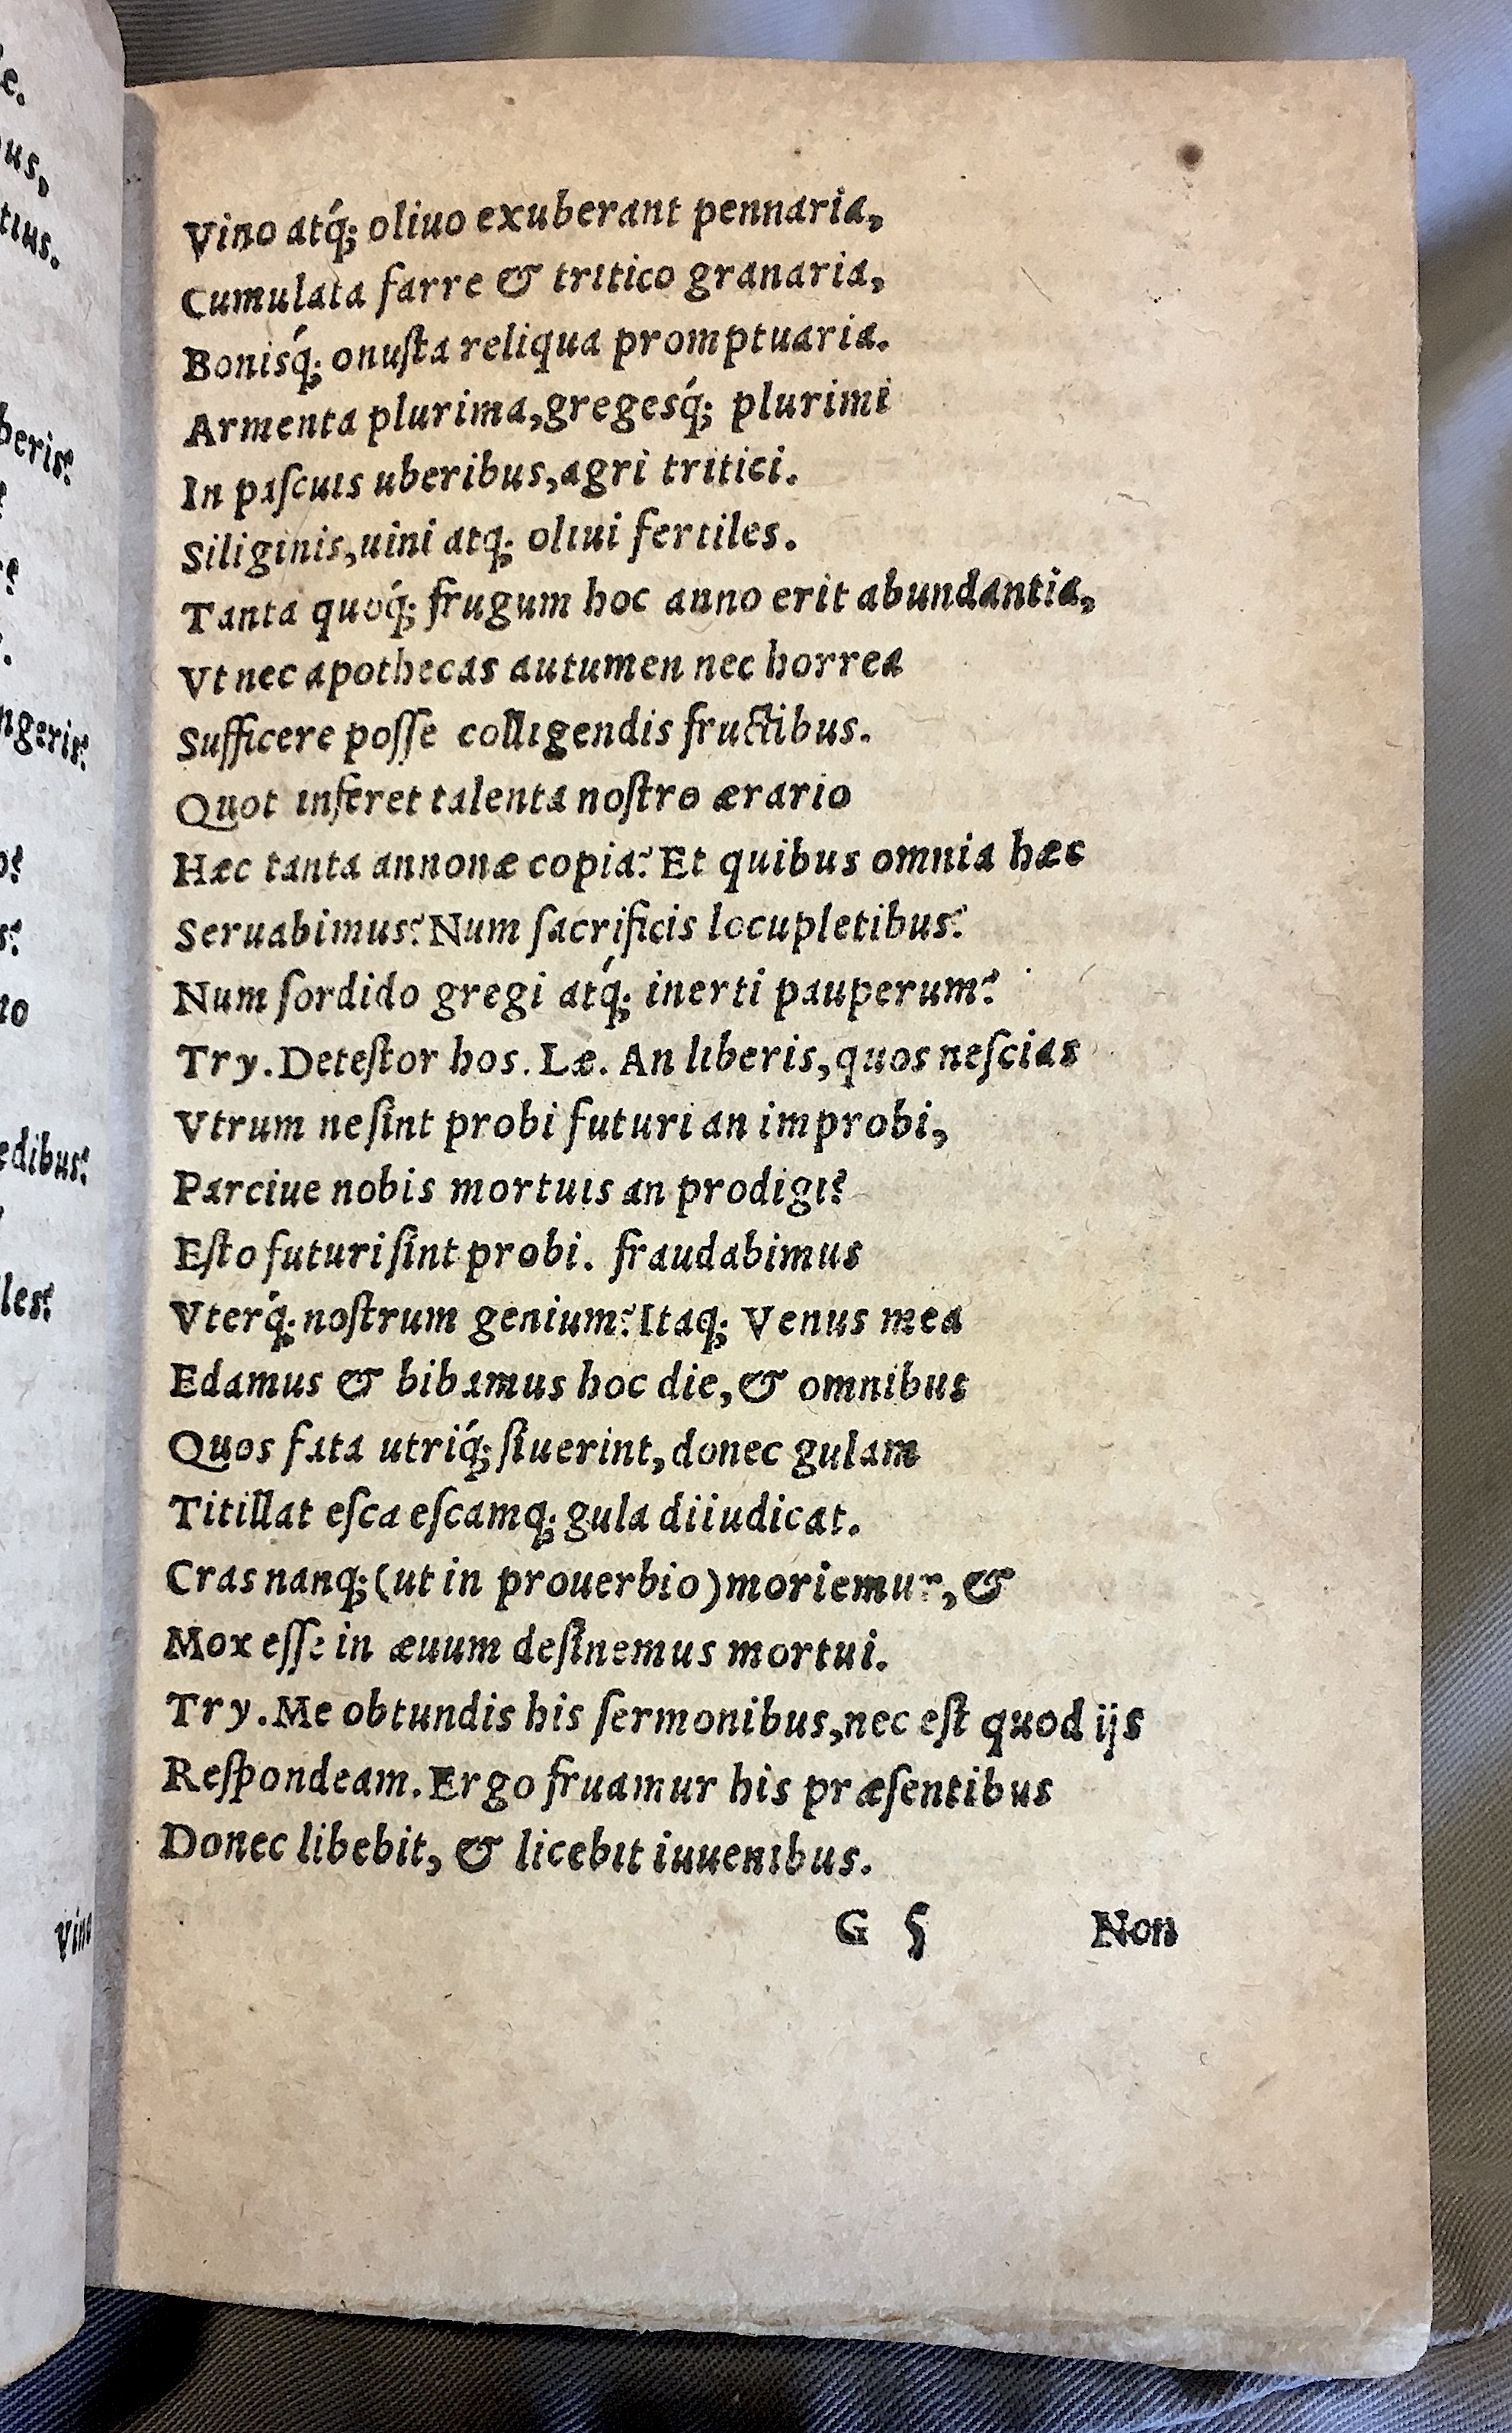 Vino atq́; oliuo exuberant pennaria,
Cumulata farre & tritico granaria,
Bonisq́; onuſta reliqua promptuaria.
Armenta plurima,gregesq́; plurimi
In paſcuis uberibus,agri tritici.
Siliginis,uini atq; oliui fertiles.
Tanta quoq́; frugum hoc anno erit abundantia,
Vt nec apothecas autumen nec horrea
Sufficere poſſe colligendis fructibus.
Quot inferet talenta noſtro ærario
Hæc tanta annonæ copia? Et quibus omnia hæc
Seruabimus? Num ſacrificis locupletibus?
Num ſordido gregi atq́; inerti pauperum?
Try. Deteſtor hos. Læ. An liberis,quos neſcias
Vtrum ne ſint probi futuri an improbi,
Parciue nobis mortuis an prodigi?
Eſto futuri ſint probi. fraudabimus
Vterq́; noſtrum genium? Itaq; Venus mea
Edamus & bibamus hoc die, & omnibus
Quos fata utriq́; ſiuerint, donec gulam
Titillat eſca eſcamq; gula diiudicat.
Cras nanq; (ut in prouerbio) moriemur, &
Mox eſſe in æuum deſinemus mortui.
Try. Me obtundis his ſermonibus,nec eſt quod ijs
Reſpondeam. Ergo fruamur his præſentibus
Donec libebit, & licebit iuuenibus.
G 5 Non